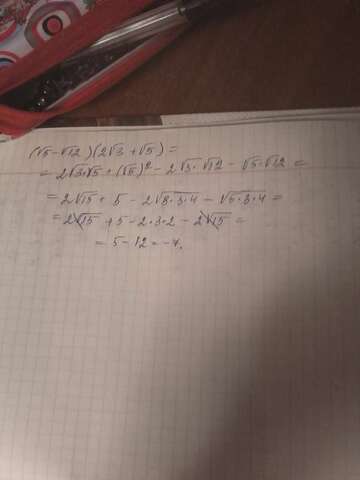 (√5-√12)(2√3+√5)=
=2√3·√5+(√5)²-2√3·√12-√5·√12=
=2√15+5-2√3·3·4-√5·3·4=
=2√15+5-2·3·2-2√15=
=5-12=-7.